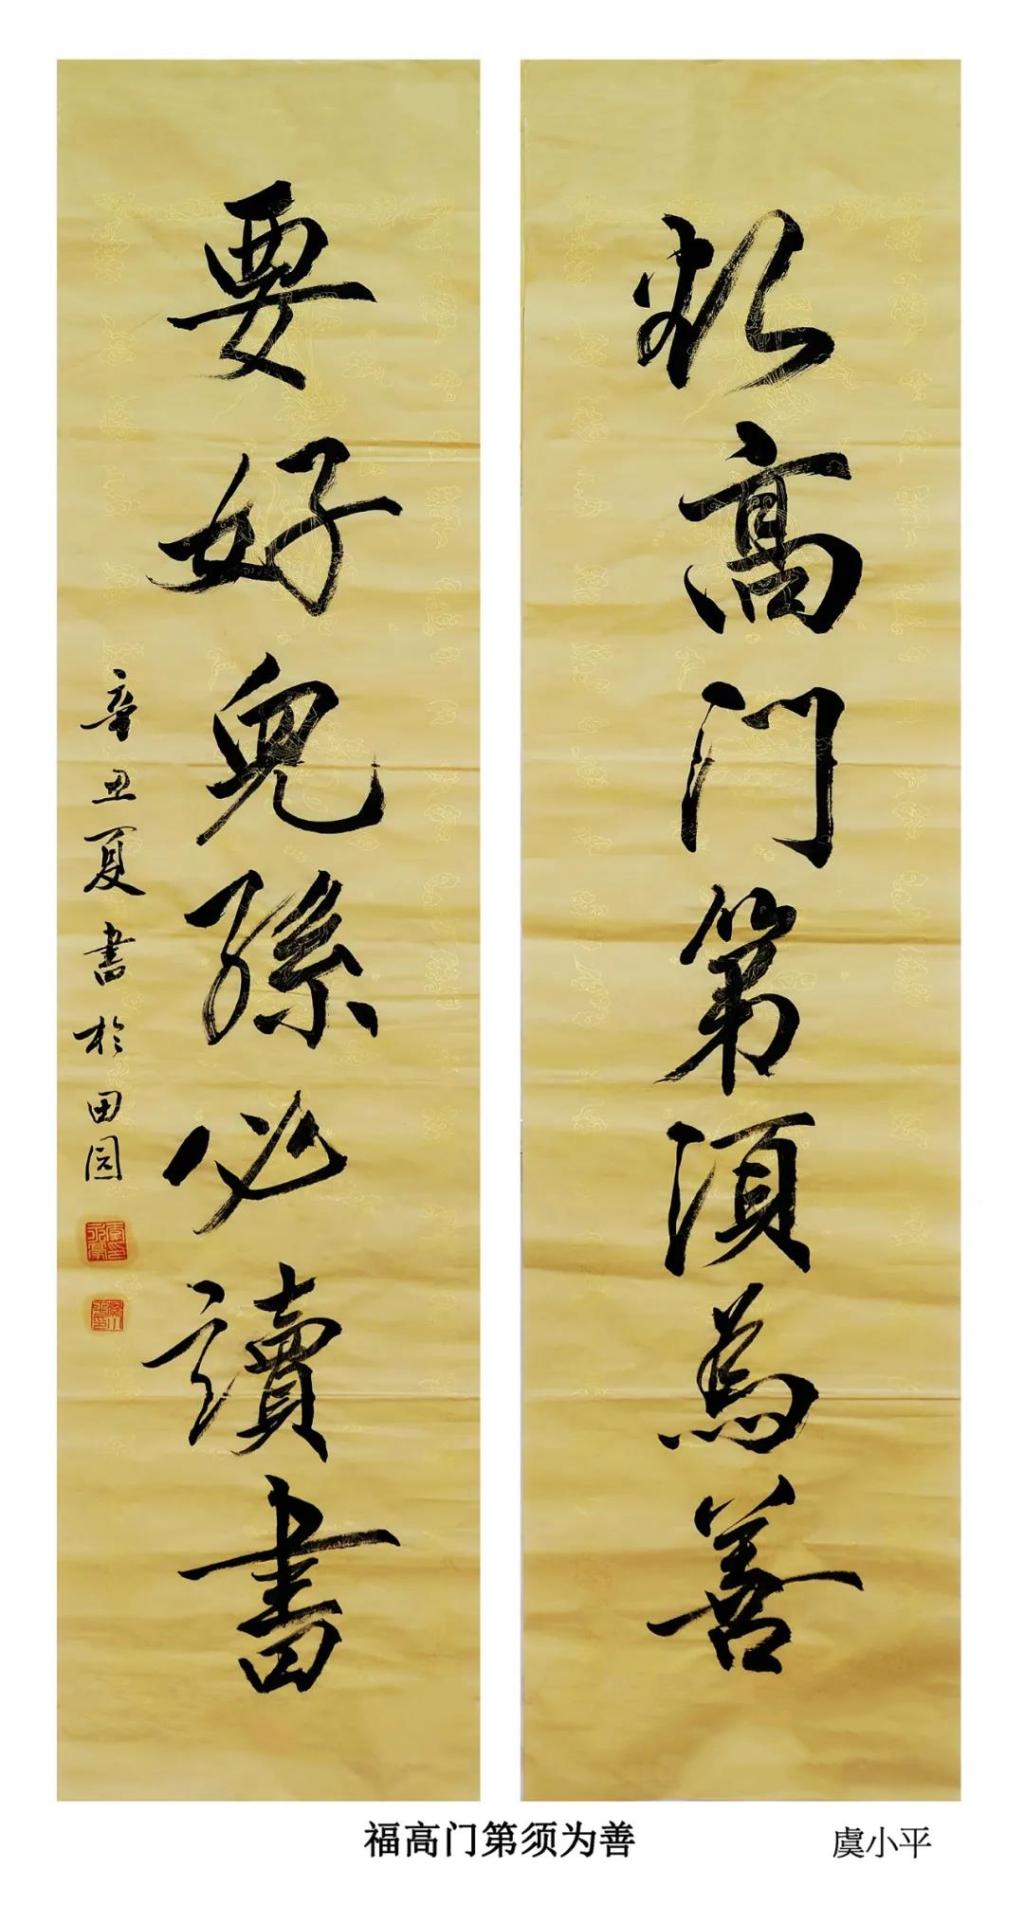 欲高门第須為善
要好兒孫必讀書
辛丑夏書於田园
福高门第须为善
虞小平